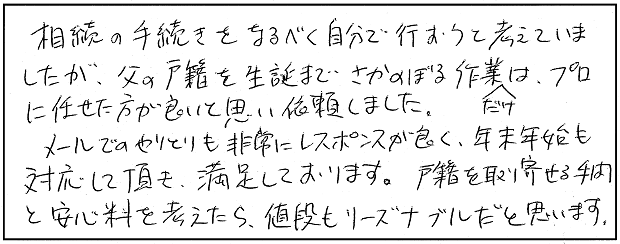 相続の手続きをなるべく自分で行おうと考えていま
したが、父の戸籍を生誕までさかのぼる作業だけは、プロ
に任せた方が良いと思い依頼しました。
メールでのやりとりも非常にレスポンスが良く、年末年始も
対応して頂き、満足しております。戸籍を取り寄せる手間
と安心料を考えたら、値段もリーズナブルだと思います。